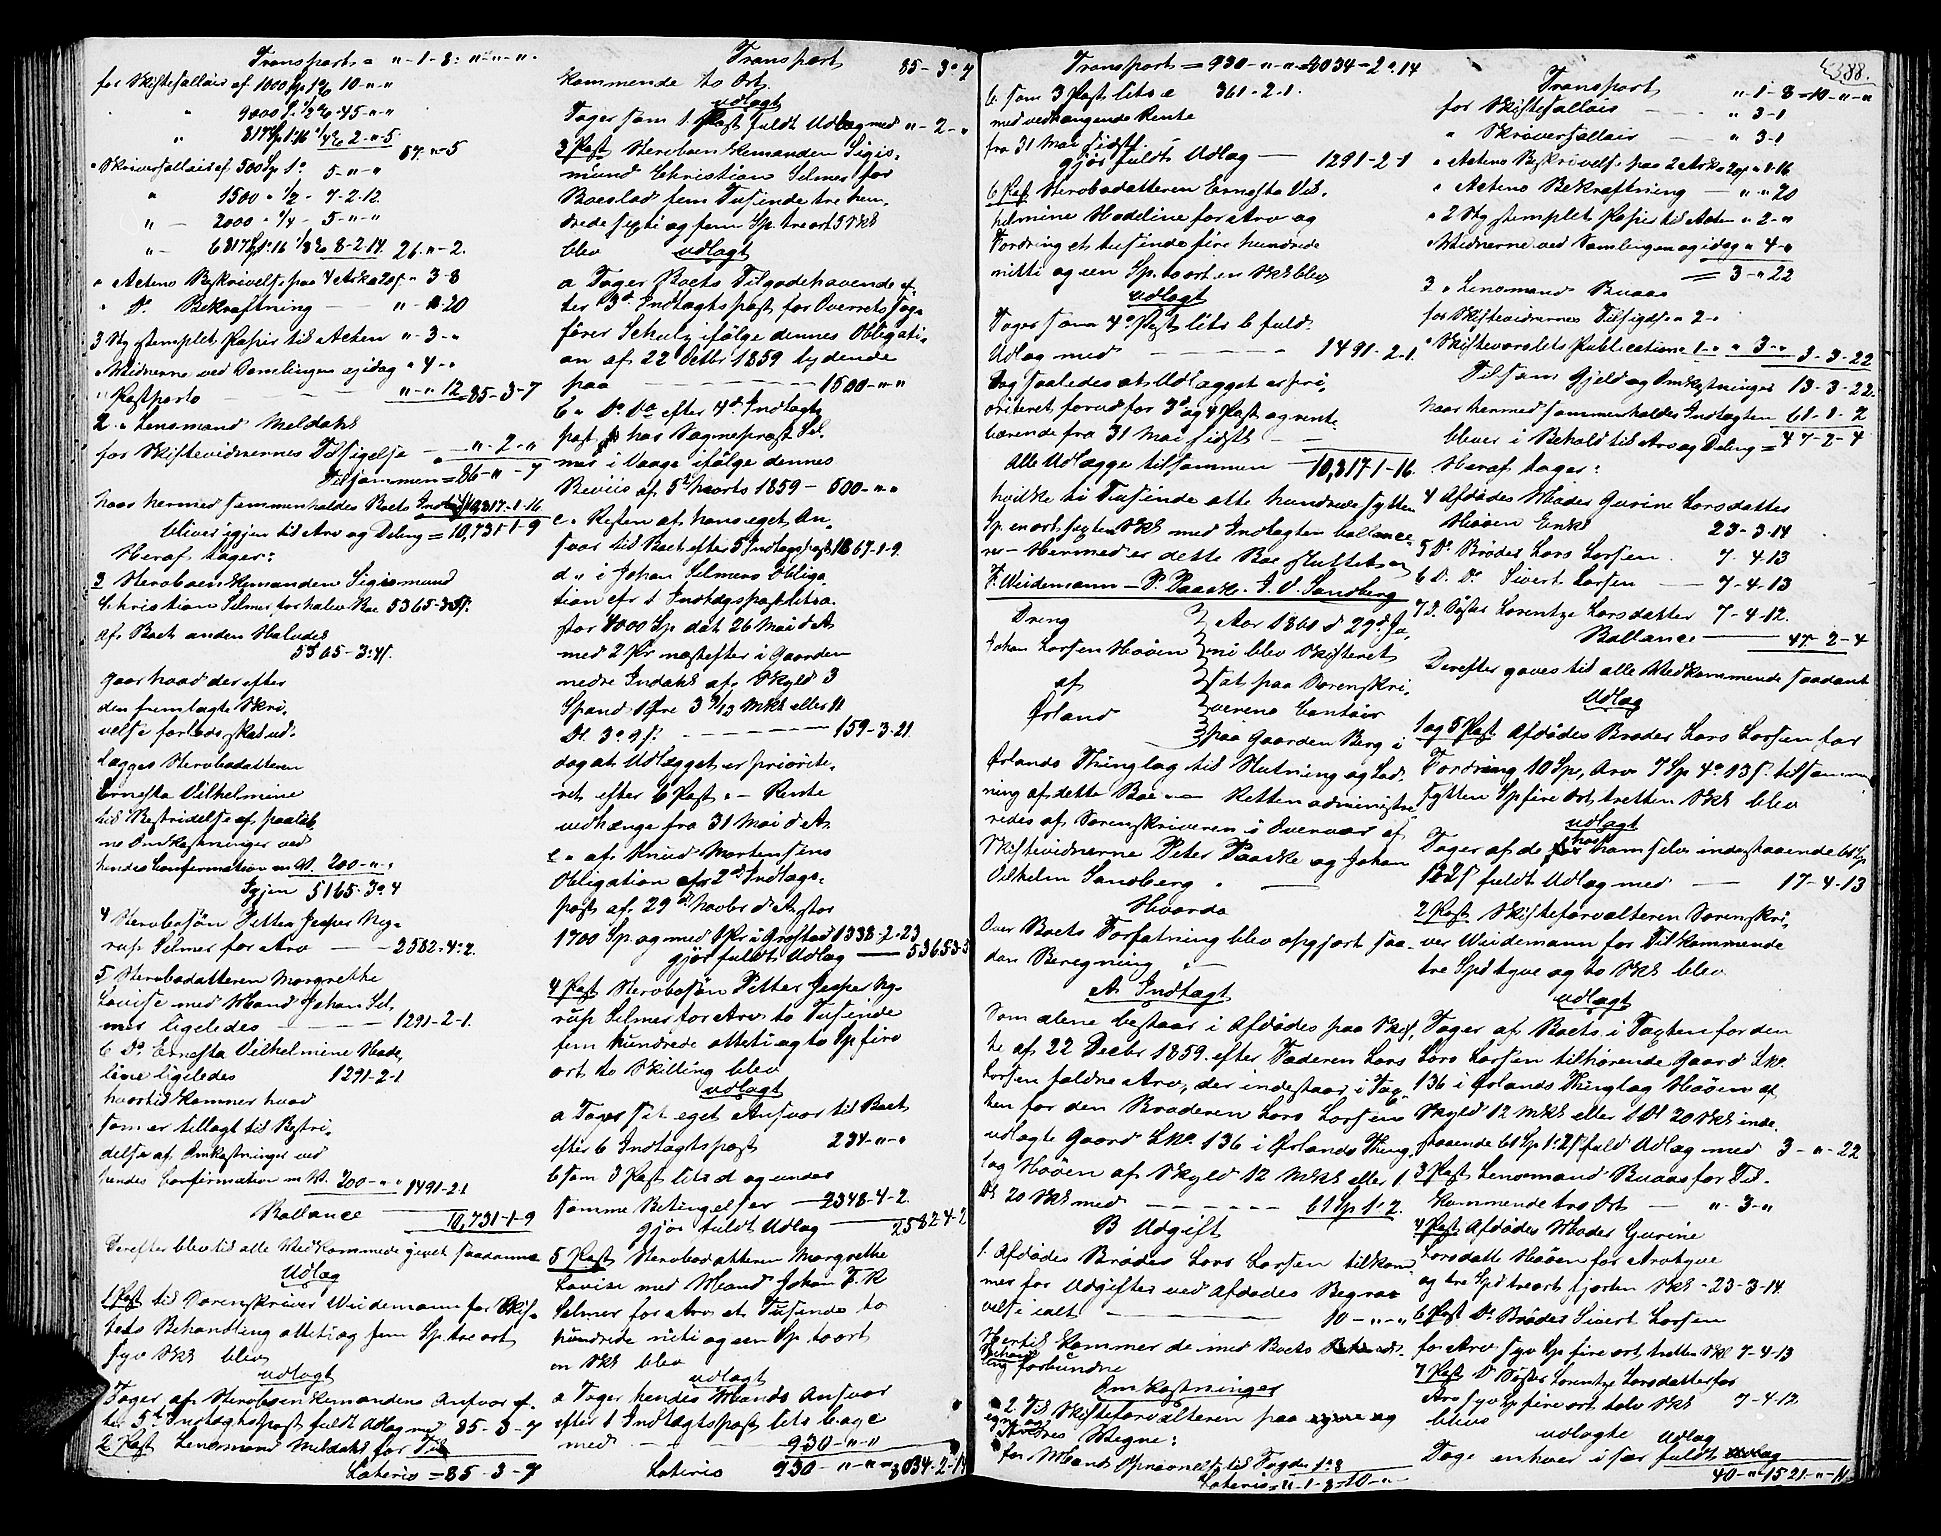 Transport = " - 1 - 8: " - " - ".
for Skiftesallair af 1000 Sp 1% 10 - " - "
" 9000 S. ½% 45 - " - "
" 817 Sp 1-16 ¼% 2 - " - 5
57. " - 5
" Skriversallair af 500 Sp 1% 5 - " - "
" 1500 " ½ - 7-2-12
" - 2000 " ¼ - 5 - " - "
" - 6817 Sp 1-16 ⅛% 8-2-14. 26. " - 2.
" Actens Beskrivelse paa 4 Ark a 20 s. " 3 - 8
" Do. Bekræftning - " - " 20
3 Stg stemplet Papir til Acten " - 3 - "
" Vidnerne ved Samlingen og idag " 4 - "
" Postporto - " - " 12 = 85-3-7
2. Lensmand Meldahl
for Skiftevidnernes Tilsigelse - " - 2 - "
Tilsammen = 86 - " - 7
naar hermed sammenholdes Boets Indtægt 10,817-1-16
bliver igjen til Arv og Deling = 10,731-1-9
Heraf tager:
3 Stervboenkemanden Sigismund
Christian Selmer for halve Boe 5365-3-5 s.
af Boets anden Halvdel
5365-3-4 s.
gaar hvad der efter
den fremlagte Skri-
velse forlods skal ud-
lægges Stervbodatteren
Ernesta Vilhelmine
til Bestridelse af paaløb-
ne Omkostninger ved
hendes Confirmation m. V. 200 - " - "
Igjen 5165-3-4
4 Stervbosøn Petter Jesper Ny-
rup Selmer for Arv - 2582-4-2.
5 Stervbodatteren Margrethe
Lovise med Mand Johan Sel-
mer ligeledes - 1291-2-1.
6 Do. Ernesta Vilhelmine Hade-
line ligeledes 1291-2-1
hvortil kommer hvad
som er tillagt til Bestri-
delse af Omkostninger ved
hendes Confirmation m. V. 200 - " - " 1491-2-1
Ballance 10,731-1-9
Derefter blev til alle Vedkommende givet saadanne
Udlæg
1 Post til Sorenskriver Wiidemann for Skif-
tets Behandling otteti og fem Sp. tre ort
syv Skl blev
udlagt
Tager af Stervboenkemandens Ansvar ef-
ter 5te Indtægtspost fuldt Udlæg med 85-3-7
2 Post Lensmand Meldahl for Til-
Lateris = 85-3-7
Transport 85-3-7
kommende to Ort
udlagt
Tager som 1. Post fuldt Udlæg med " - 2 - "
3 Post Stervboenkemanden Sigis-
mund Christian Selmer for
Boeslod fem Tusinde tre hun-
drede sexti og fem Sp. tre ort 5 Skl
blev udlagt
a Tager Boets Tilgodehavende ef-
ter 3d Indtægtspost for Overrets Sag-
fører Schulz ifølge dennes Obligati-
on af 22 Octbr 1859 lydende
paa - 1500 - " - "
b " Do. Do efter 4de Indtægts
post hos Sagmester Sel-
mer i Vaage ifølge dennes
Beviis af 5te Marts 1859 - 500 - " - "
c " Resten af hans eget An-
svar til Boet efter 5 Indtægtspost 1867-1-9.
d " i Johan Selmers Obliga-
tion efter 1 Indtægspost litr a.
stor 4000 Sp dat 26 Mai d. A
med 2 Pr næstefter i Gaarden
nedre Indahl af Skyld 3
Spand 1 Øre 3 9/13 Mkl eller 11
Dl. 3 o. 9 s. - 159-3-21.
dog at Udlægget er priorite-
ret efter 6 Post. - Rente
vedhænge fra 31 Mai d. A.
e " af Knud Mortensens
Obligation efter 2den Indtægs-
post af 29de Novbr d. A. stor
1700 Sp. og med 1 Pr i Grøstad 1338-2-23
gjør fuldt Udlæg - 5365-3-5
4 Post Stervbosøn Petter Jesper Ny-
rup Selmer for Arv to Tusinde
fem hundrede otteti og to Sp fire
ort to Skilling blev
udlagt
a Tager sit eget Ansvar til Boet
efter 6 Indtægtspost 234 - " - "
b som 3 Post litr d og under
samme Betingelser - 2348-4-2.
gjør fuldt Udlæg - 2582-4-2
5 Post Stervbodatteren Margrethe
Lovise med Mand Johan F. R
Selmer for Arv et Tusinde to
hundrede niti og een Sp to ort
en Skl blev
udlagt
a Tager hendes Mands Ansvar
efter 1 Indtægtspost litr b og c
med - 930 - " - "
Lateris 930 - " - " = 8034-2-14
Transport = 930 - " - " = 8034-2-14
b. som 3 Post litr e 361-2-1.
med vedhængende Rente
fra 31 Mai sidst.
gjør fuldt Udlæg - 1291-2-1
6 Post Stervbodatteren Ernesta Vil-
helmine Hadeline for Arv og
Fordring et tusinde fire hundrede
nitti og een Sp. to ort en Skl blev
udlagt
Tager som 4de Post litr b fuld
Udlæg med - 1491-2-1.
Dog saaledes at Udlægget er pri-
oriteret forud for 3d og 4 Post og rente
bærende fra 31 Mai sidst -
Alle Udlægge tilsammen - 10,817-1-16.
hvilke ti Tusinde otte hundrede sytten
Sp. en ort, sexten Skl med Indtægten ballance-
rer - Hermed er dette Boe sluttet og
F. Wiidemann - P. Paaske. J. V. Sandberg
Dreng
Johan Larsen Høven
af
Ørland
Aar 1860 d 29de Ju-
ni blev Skifteret
sat paa Sorenskri-
verens Contoir
paa Gaarden Berg i
Ørlands Thinglag til Slutning og Lad-
ning af dette Boe. - Retten administre-
redes af Sorenskriveren i Overvær af
Skiftevidnerne Peter Paaske og Johan
Vilhelm Sandberg. -
Hvorda
Over Boets Forfatning blev opgjort saa-
dan Beregning
A Indtægt
Som alene bestaar i Afdødes paa Skif-
te af 22 Decbr 1859 efter Faderen Lars
Larsen faldne Arv, der indestaar i Tax-
ten for den Broderen Lars Larsen
udlagte Gaard LNo. 136 i Ørlands Thing-
lag Høven af Skyld 12 Mkl eller 1
Dl 20 Skl med - 61 Sp 1-2.
B Udgift
1. Afdødes Broder Lars Larsen tilkom-
mer for Udgifter ved Afdødes Begra-
velse ialt - 10 - " - "
Hertil kommer de med Boets
Behandling forbundne
Omkostninger
2. Til Skifteforvalteren paa egne og
Andres Vegne:
for Mands Opnævnelse til Tagda 1 o. 8
Lateris = " - 1 - 8 = 10 - " - "
388.
Transport " - 1 - 8 = 10 - " - "
for Skiftesallair - " 3-1
" Skriversallair - " 3-1
" Actens Beskrivelse paa 2 Ark a 20 s " 1-16
" Actens Bekræftning - " " 20
" 2 Stg stemplet Papir til Acten " 2 - "
" Vidnerne ved Samlingen og idag " 4 - "
= 3 - " 22
3 " Lensmand Buaas
for Skiftevidnernes Tilsigelse " 2 - "
" Skiftevarslets Publication 1 - " " 3 - " 3-3-22
Tilsam Gjeld og Omkostninger 13-3-22.
naar hermed sammenholdes Indtægten 61-1-2
bliver i Behold til Arv og Deling = 47-2-4
Heraf tager:
4 Afdødes Moder Gurine Larsdatter
Høven Enke 23-3-14
5 Do. Broder Lars Larsen. 7-4-13
6 D. Do Sivert Larsen - 7-4-13
7 D. Søster Lorentze Larsdatter 7-4-12.
Ballance - 47-2-4
Derefter gaves til alle Vedkommende saadant
Udlæg
1 og 5 Post Afdødes Broder Lars Larsen for
Fordring 10 Sp, Arv 7 Sp 4 o. 13 s. tilsamm
sytten Sp fire ort, tretten Skl blev
udlagt
Tager af de hos ham selv indestaaende 61 Sp
1 o. 2 s fuldt Udlæg med - 17-4-13
2 Post Skifteforvalteren Sorenskri-
ver Wiidemann for Tilkommende
tre Spd tyve og to Skl blev
udlagt
Tager af Boets i Taxten for den
Lars Larsen tilhørende Gaard LNo.
136 i Ørlands Thinglag Høven af
Skyld 12 Mkl eller 1 Dl 20 Skl inde-
staaende 61 Sp 1-2 s fuld Udlæg med 3 - " - 22
3 Post Lensmand Buaas for Til-
kommende tre Ort - " - 3 - "
4 Post Afdødes Moder Gurine
Larsdatter Høven for Arv tyve
og tre Spd tre ort fjorten Skl - 23-3-14
6 Post Do Broder Sivert Larsen
for Arv syv Sp fire ort, tretten Skl 7-4-13
7 Post D Søster Lorentze Larsdatter for
Arv syv Sp fire ort tolv Skl 7-4-12
blev
udlagte
Tage enhver især fuldt Udlæg